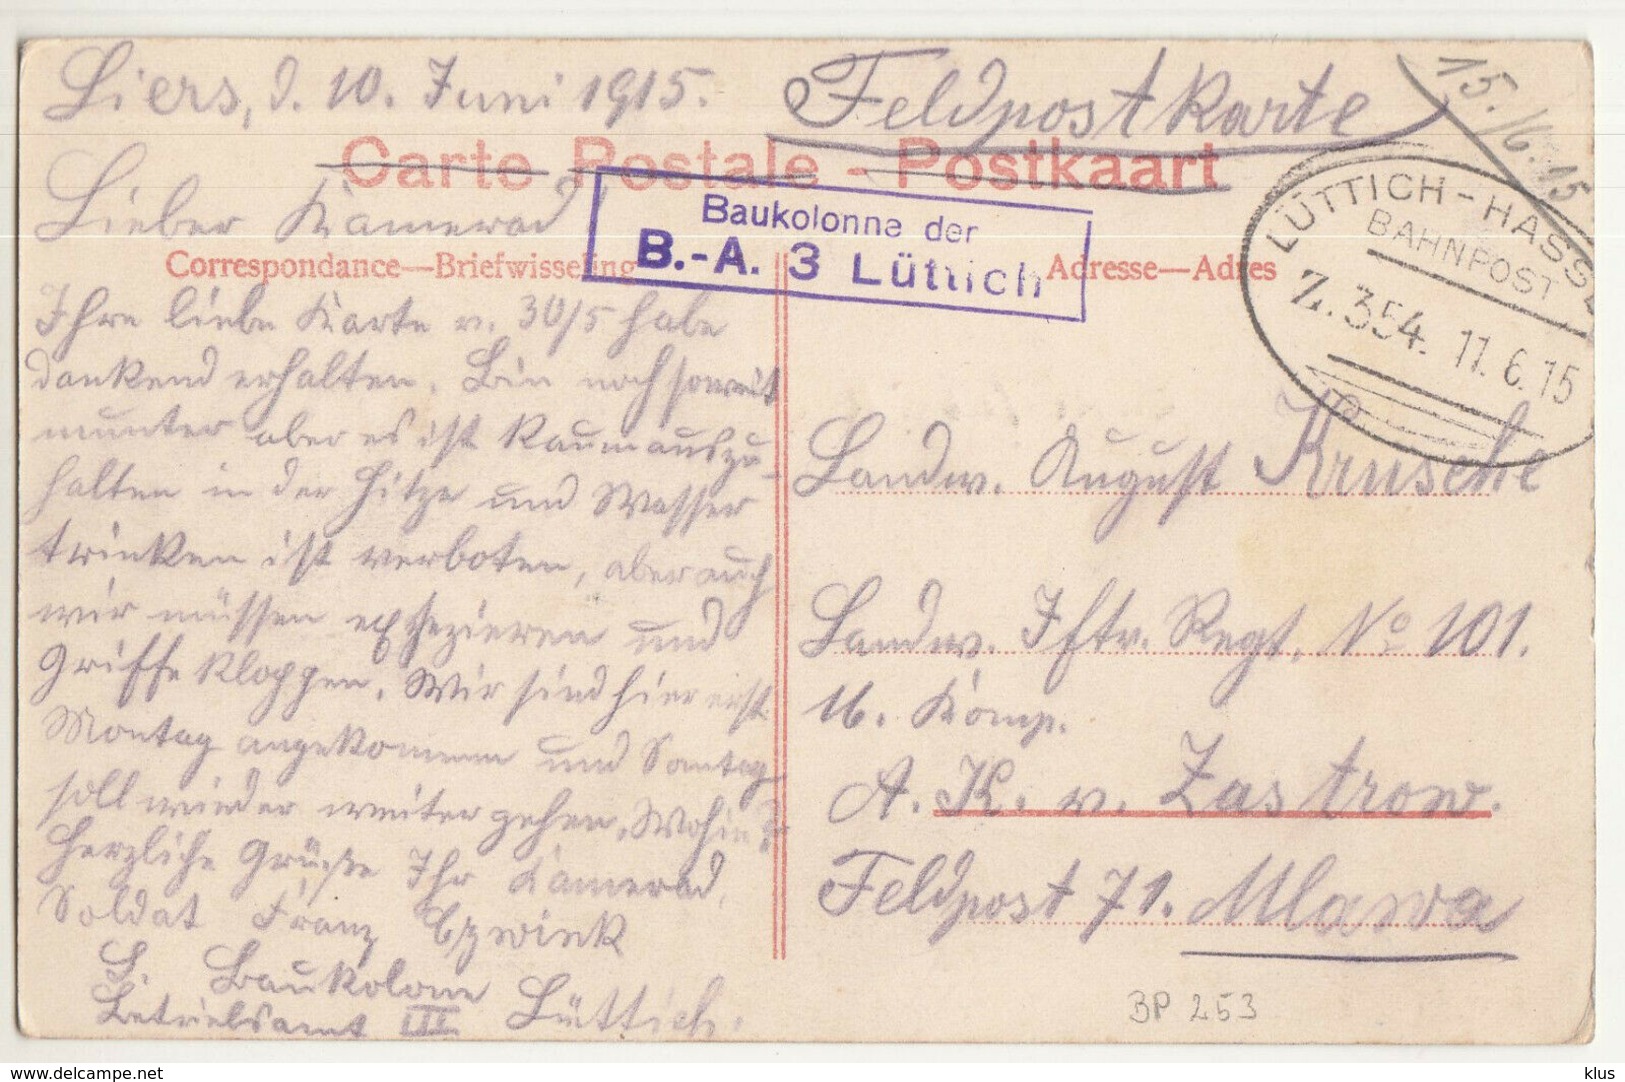 Liers, d. 10. Juni 1915.
Feldpostkarte
15./6.15
Carte Postale - Postkaart
Lieber Kamerad!
Baukolonne der
B.-A. 3 Lüttich
LÜTTICH - HASSE
BAHNPOST
Z. 354. 11. 6. 15
Correspondance—Briefwisseling
Adresse—Adres
Ihre liebe Karte v. 30/5 habe
dankend erhalten. Bin noch soweit
munter aber es ist kaum auszu-
halten in der Hitze und Wasser
trinken ist verboten, aber auch
wir müssen exerzieren und
Griffe kloppen. Wir sind hier erst
Montag angekommen und Sontag
soll wieder weiter gehen. Wohin?
Herzliche Grüße Ihr Kamerad,
Soldat Franz
Baukolone
Betriebsamt III Lüttich.
Landw. August Krusche
Landw. Iftr. Regt. No 101.
11. Komp.
A. K. v. Zastrow.
Feldpost 71. Mlawa
BP 253
delcampe.net
klus